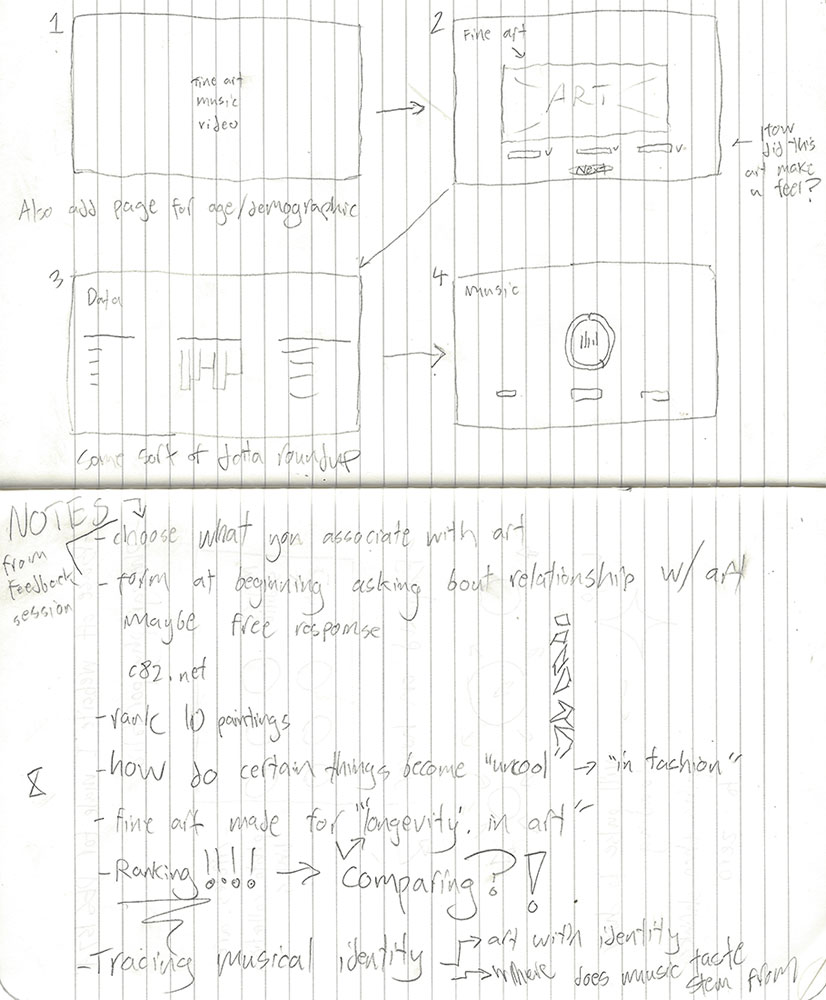 1
Fine art
music
video
Also add page for age/demographic
2
Fine art
ART
Next
How
did this
art make
u feel?
3
Data
some sort of data roundup
4
Music
NOTES
from
feedback
session
- choose what you associate with art
- form at beginning asking bout relationship w/ art
maybe free response
c82.net
- rank 10 paintings
- how do certain things become "uncool" → "in fashion"
- fine art made for "longevity. in art"
- Ranking !!!! → Comparing?!
- Tracing musical identity → art with identity
→ where does music taste
stem from